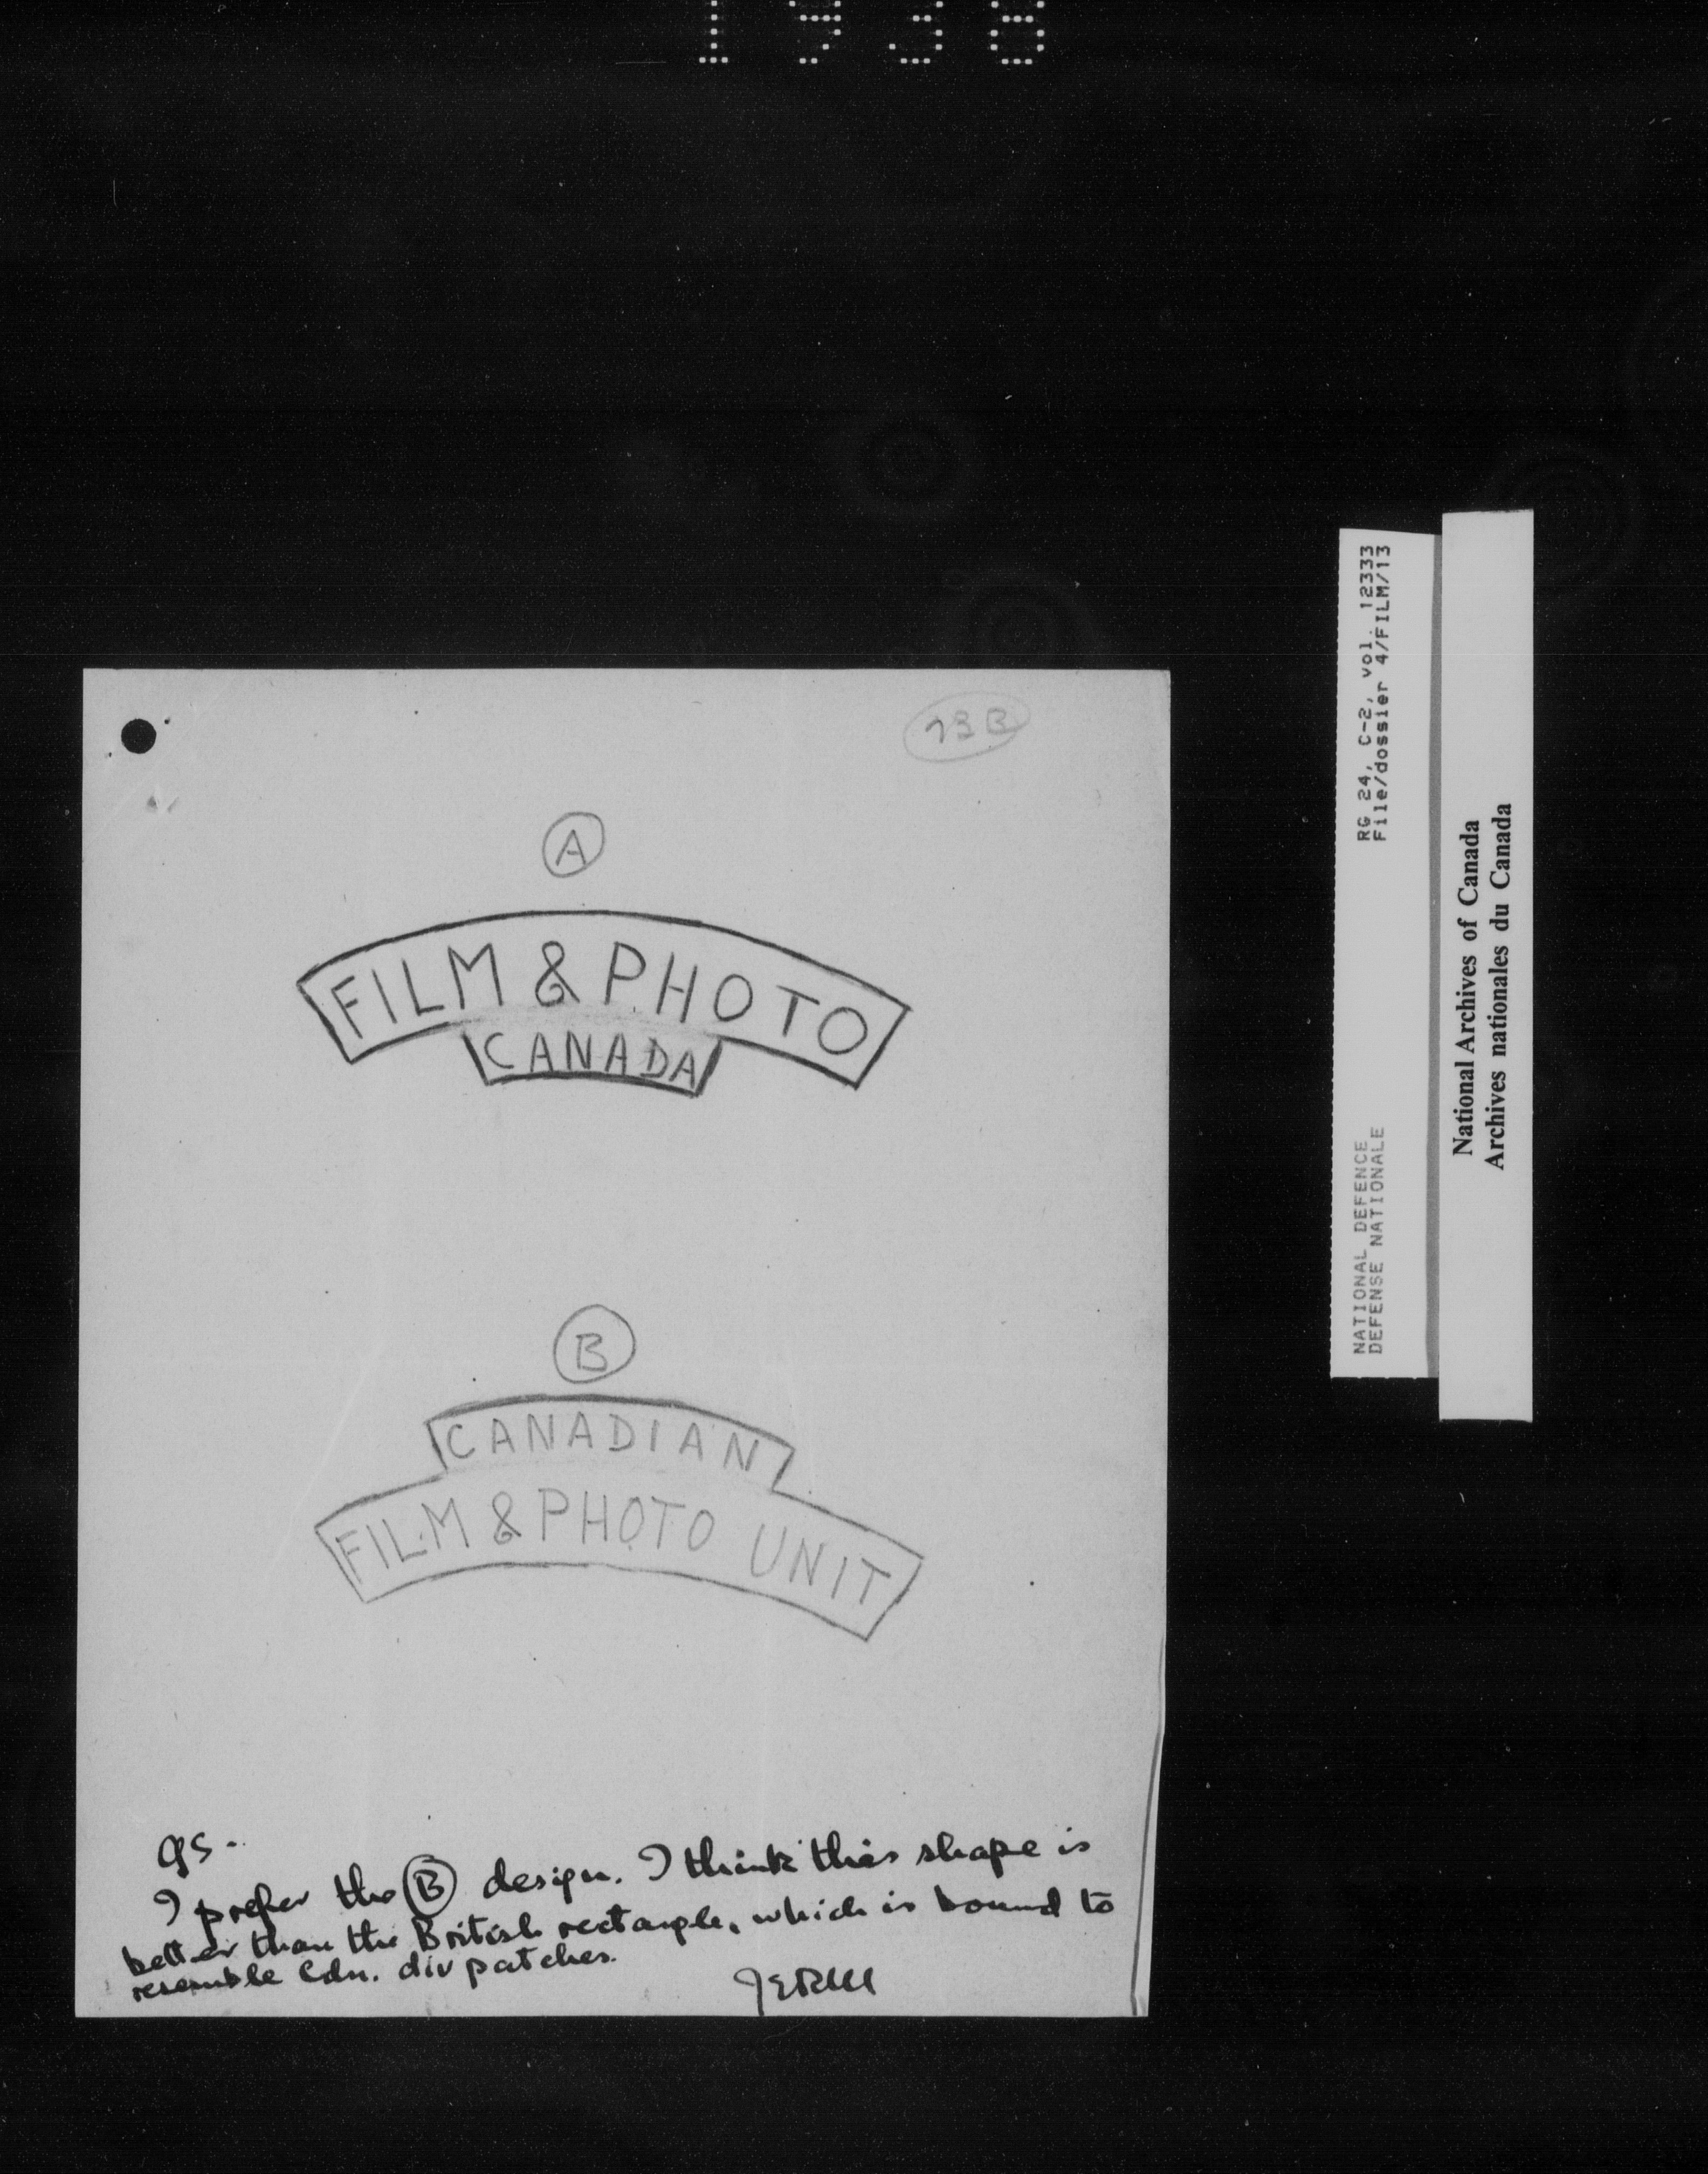 1938
73B
A
FILM & PHOTO
CANADA
B
CANADIAN
FILM & PHOTO UNIT
GS -
I prefer the B design. I think this shape is
better than the British rectangle, which is bound to
resemble Cdn. div patches.
RG 24, C-2, vol. 12333
File/dossier 4/FILM/13
NATIONAL DEFENCE
DEFENSE NATIONALE
National Archives of Canada
Archives nationales du Canada